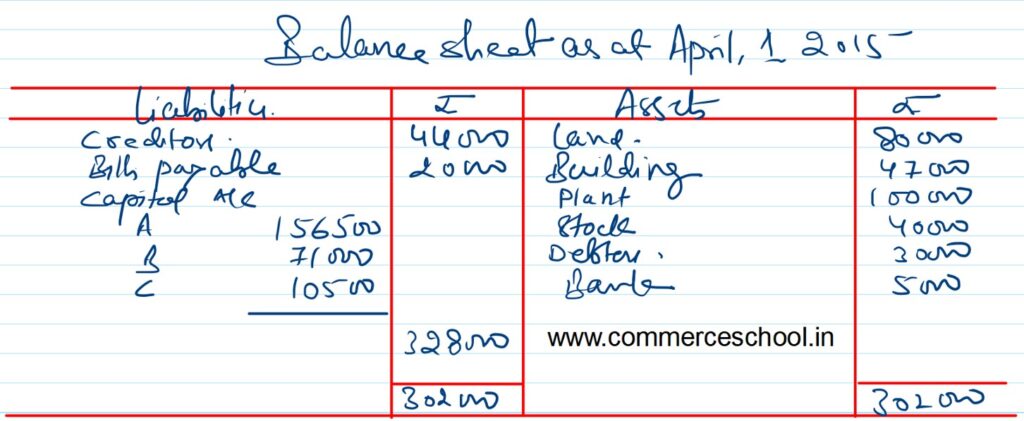 Balance sheet as at April, 1 2015
Liabilities. ₹ Assets ₹
Creditors. 44000 Land. 80000
Bills payable 20000 Building 47000
Capital A/c Plant 100000
A 156500 Stock 40000
B 71000 Debtors. 30000
C 10500 Bank 5000
328000 www.commerceschool.in
302000 302000